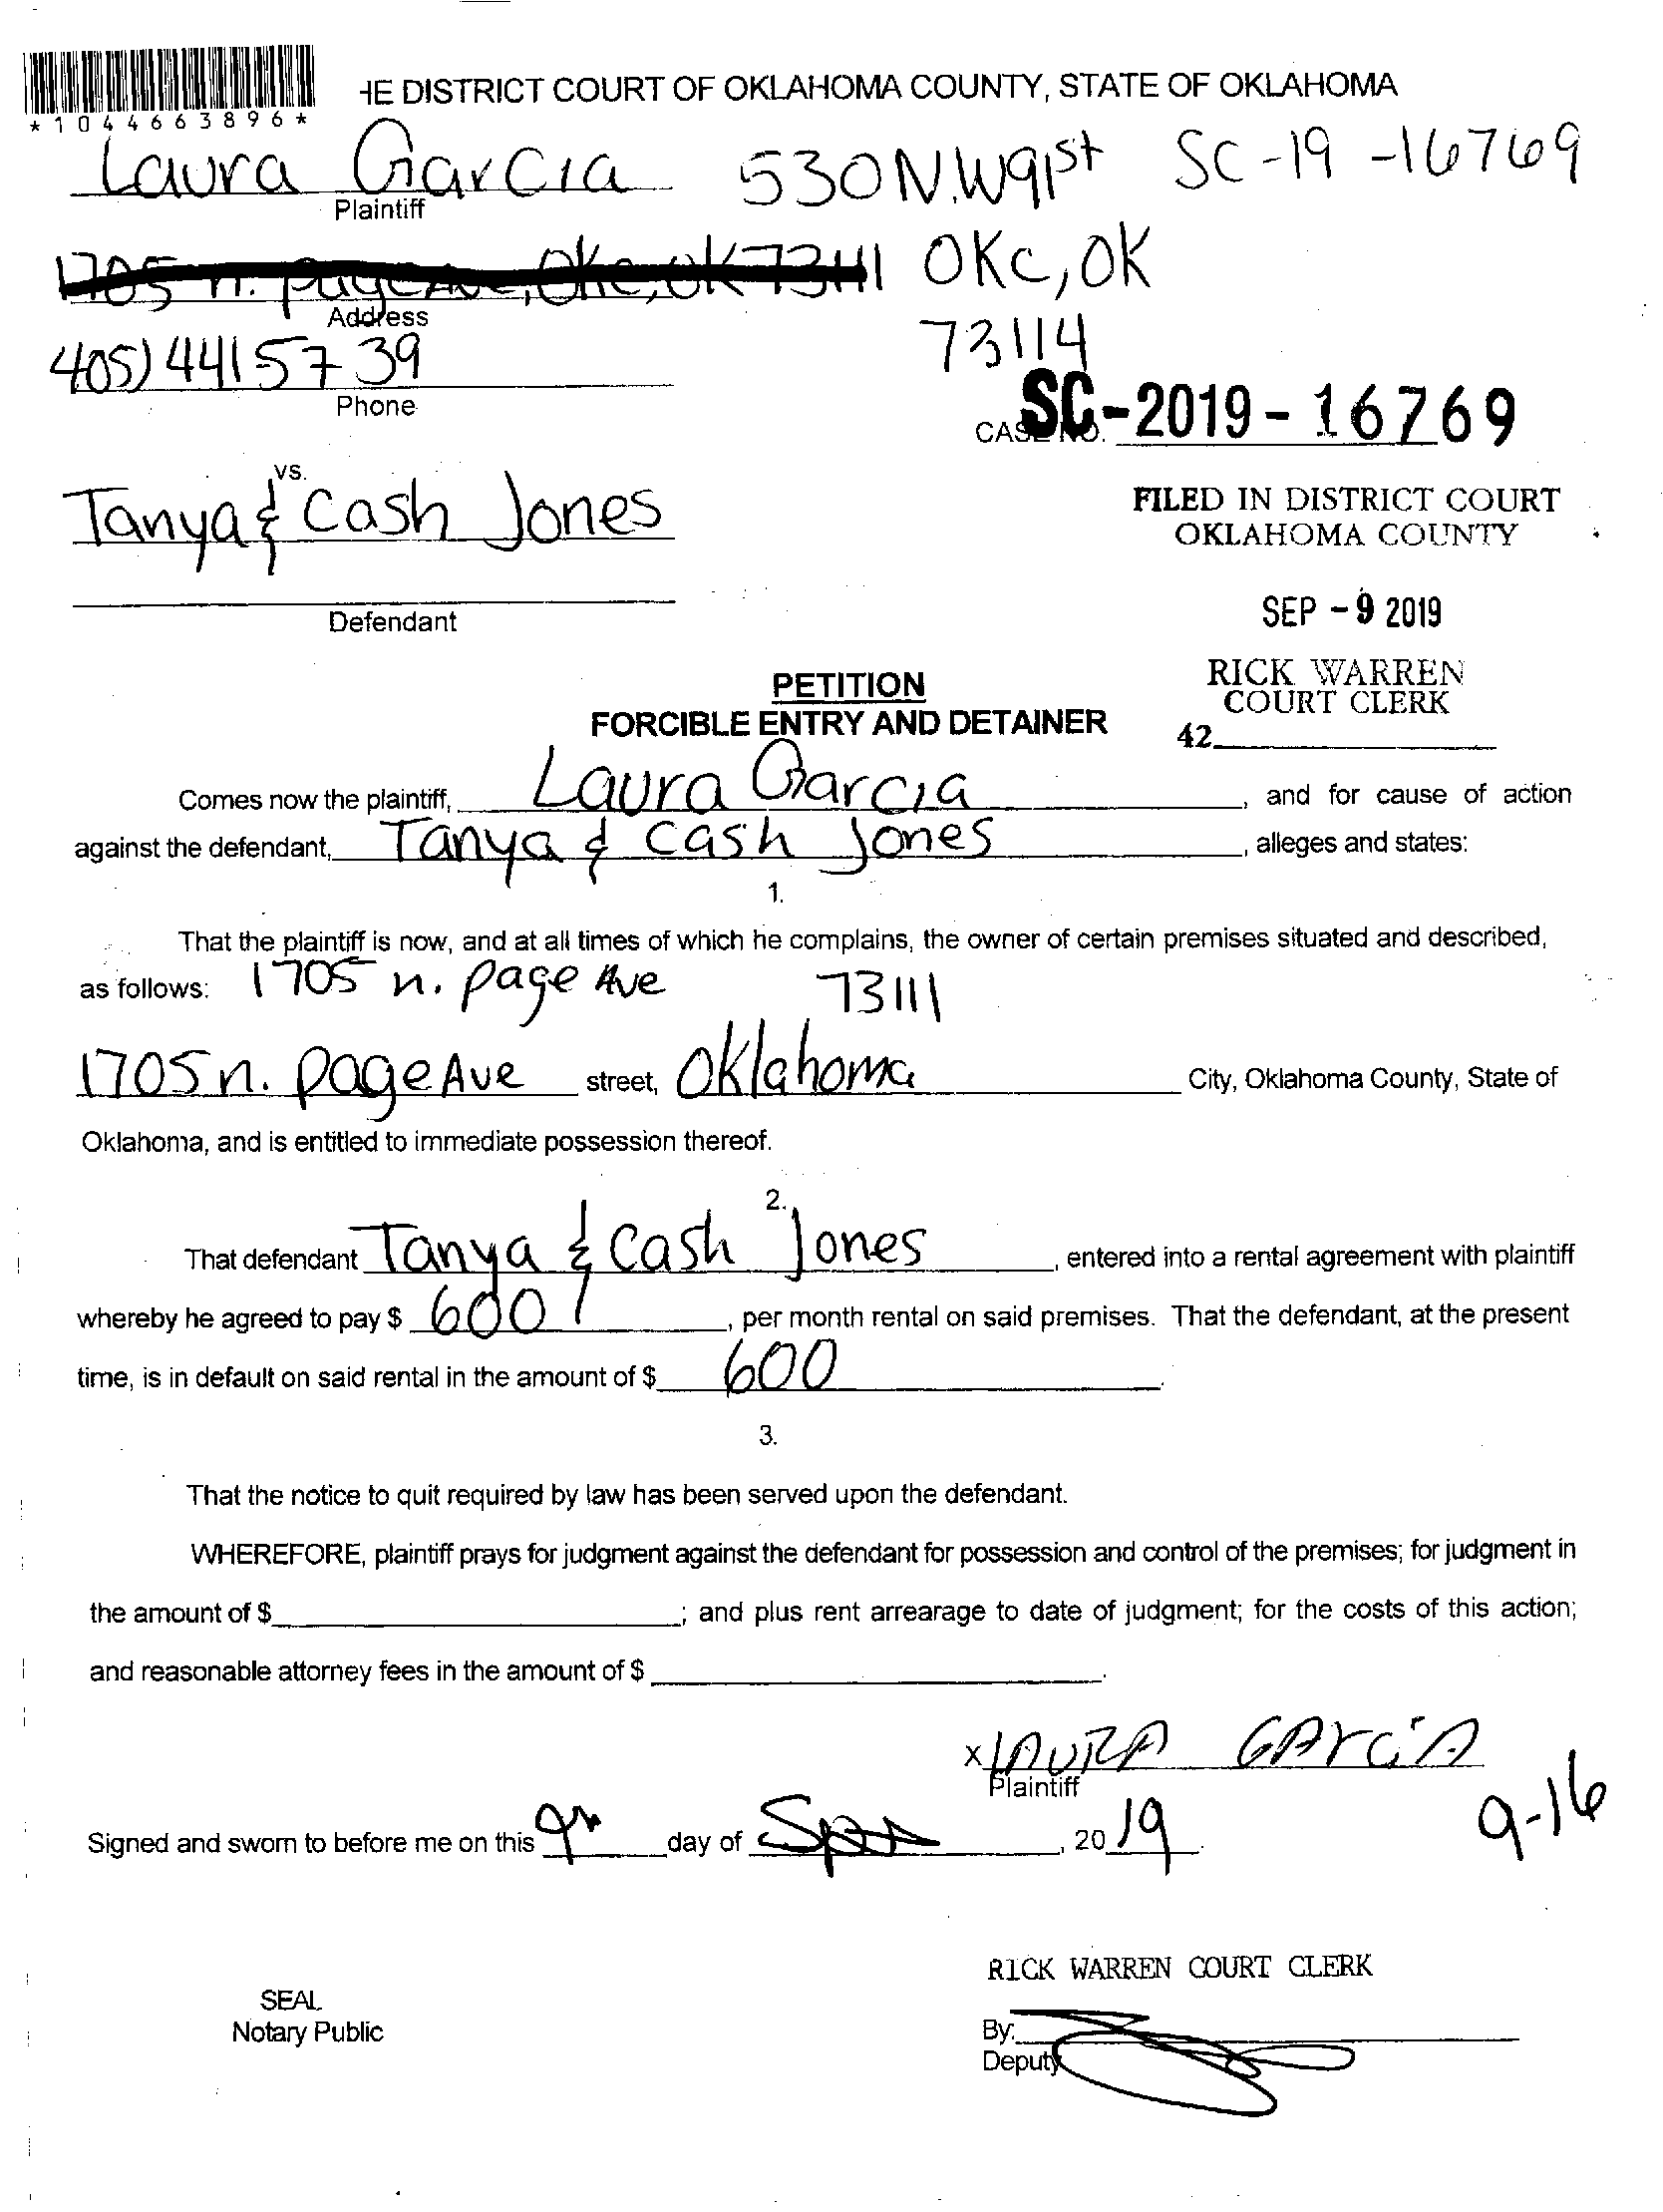 HE DISTRICT COURT OF OKLAHOMA COUNTY, STATE OF OKLAHOMA
*1044663896*
Laura Garcia 530 N.W 91st SC-19-16769
Plaintiff
1705 n. page Ave, Okc, OK 73111 OKC, OK
Address
73114
405) 441 57 39
Phone
CASE NO. SC-2019-16769
vs.
Tanya & Cash Jones
FILED IN DISTRICT COURT
OKLAHOMA COUNTY
Defendant
SEP -9 2019
PETITION
FORCIBLE ENTRY AND DETAINER
RICK WARREN
COURT CLERK
42
Comes now the plaintiff, Laura Garcia, and for cause of action
against the defendant, Tanya & Cash Jones, alleges and states:
1.
That the plaintiff is now, and at all times of which he complains, the owner of certain premises situated and described,
as follows: 1705 n. page Ave 73111
1705 n. page Ave street, Oklahoma City, Oklahoma County, State of
Oklahoma, and is entitled to immediate possession thereof.
2.
That defendant Tanya & Cash Jones, entered into a rental agreement with plaintiff
whereby he agreed to pay $ 600, per month rental on said premises. That the defendant, at the present
time, is in default on said rental in the amount of $ 600.
3.
That the notice to quit required by law has been served upon the defendant.
WHEREFORE, plaintiff prays for judgment against the defendant for possession and control of the premises; for judgment in
the amount of $ ; and plus rent arrearage to date of judgment; for the costs of this action;
and reasonable attorney fees in the amount of $ .
x LAURA GArciA
Plaintiff
Signed and sworn to before me on this 9 day of , 20 19.
9-16
RICK WARREN COURT CLERK
SEAL
Notary Public
By:
Deputy